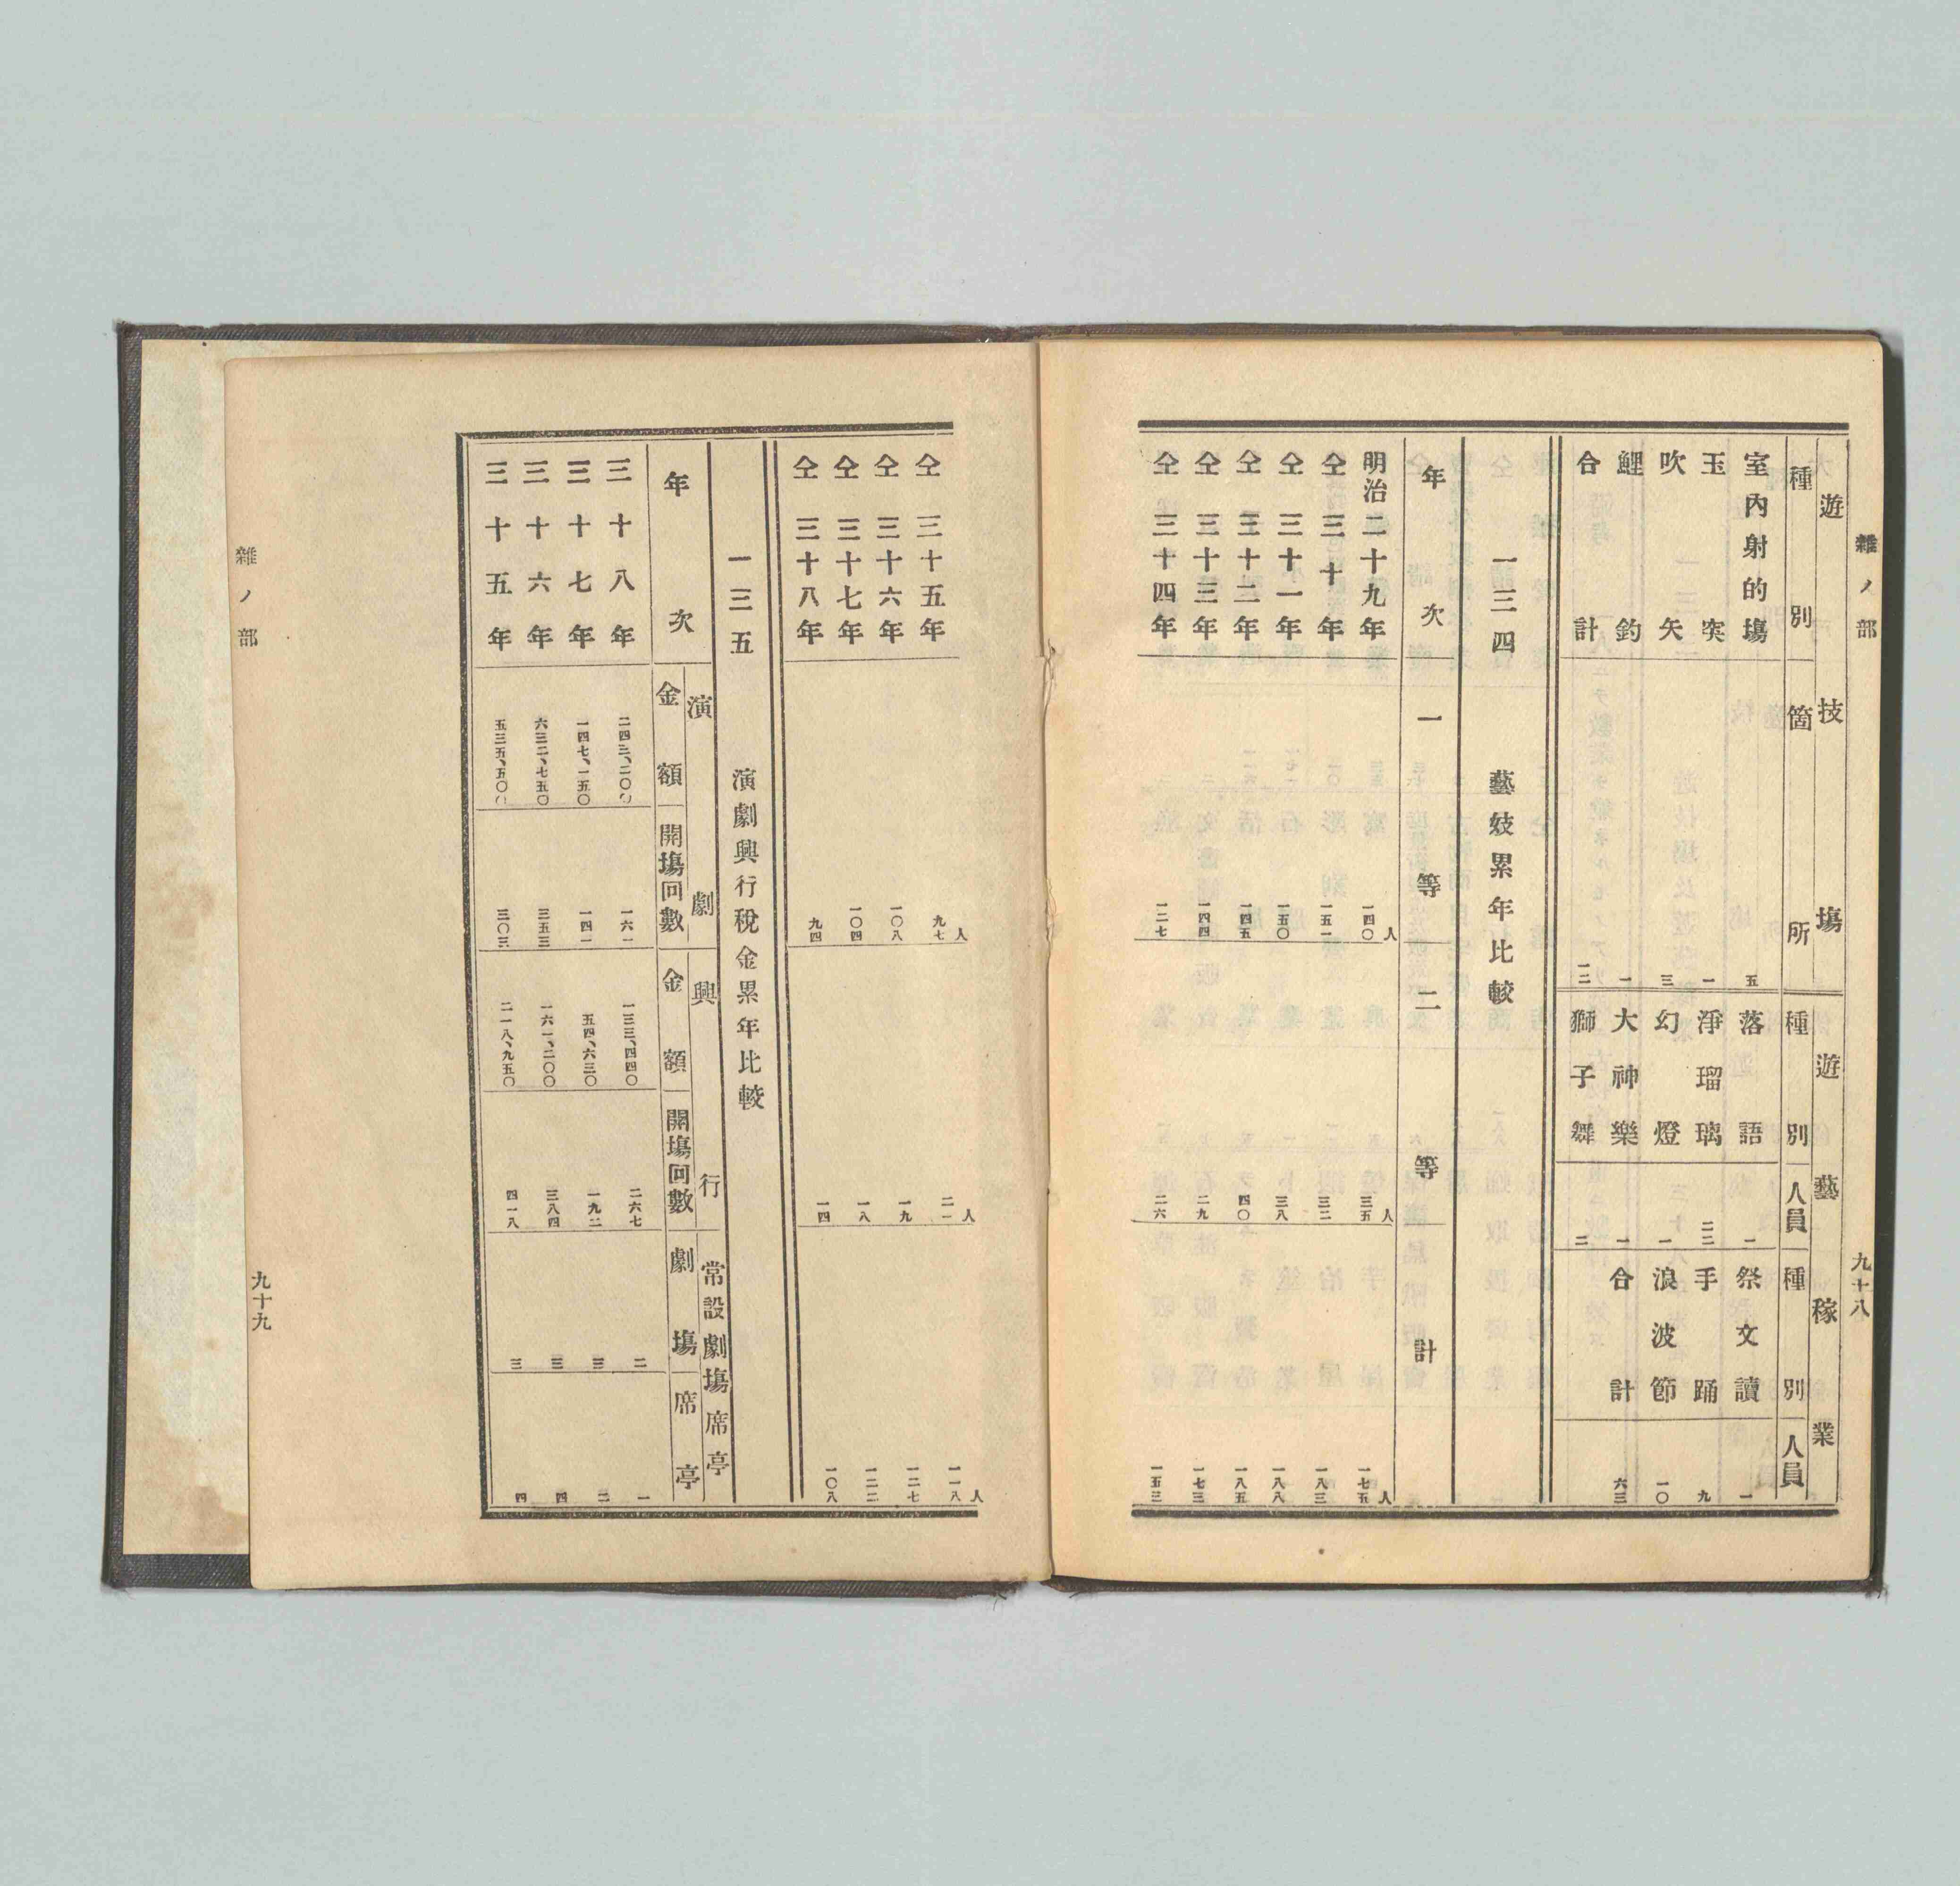 雜ノ部 九十八
遊技塲 遊藝稼業
種別 箇所 種別 人員 種別 人員
室內射的塲 五 落語 一 祭文讀 一
玉突 一 淨瑠璃 手踊 九
吹矢 三 幻燈 一 浪波節 一〇
鯉釣 一 大神樂 一 合計 六三
合計 獅子舞
一三四 藝妓累年比較
年次 一等 二等 計
明治二十九年 一四〇人 三五人 一七五人
仝三十年 一五一 三二 一八三
仝三十一年 一五〇 三八 一八八
仝三十二年 一四五 四〇 一八五
仝三十三年 一四四 二九 一七三
仝三十四年 一二七 二六 一五三
仝三十五年 九七人 二一人 一一八人
仝三十六年 一〇八 一九 一二七
仝三十七年 一〇四 一八 一二二
仝三十八年 九四 一四 一〇八
一三五 演劇興行稅金累年比較
年次 演劇 興行 常設劇塲席亭
金額 開塲回數 金額 開塲回數 劇塲 席亭
三十八年 二四三、二〇〇 一六一 一三三、四四〇 二六七 二 一
三十七年 一四七、一五〇 一四一 五四、六三〇 一九二 三 二
三十六年 六三二、七五〇 三五三 一六一、二〇〇 三八四 三 四
三十五年 五三五、五〇〇 三〇三 二一八、九五〇 四一八 三 四
雜ノ部 九十九